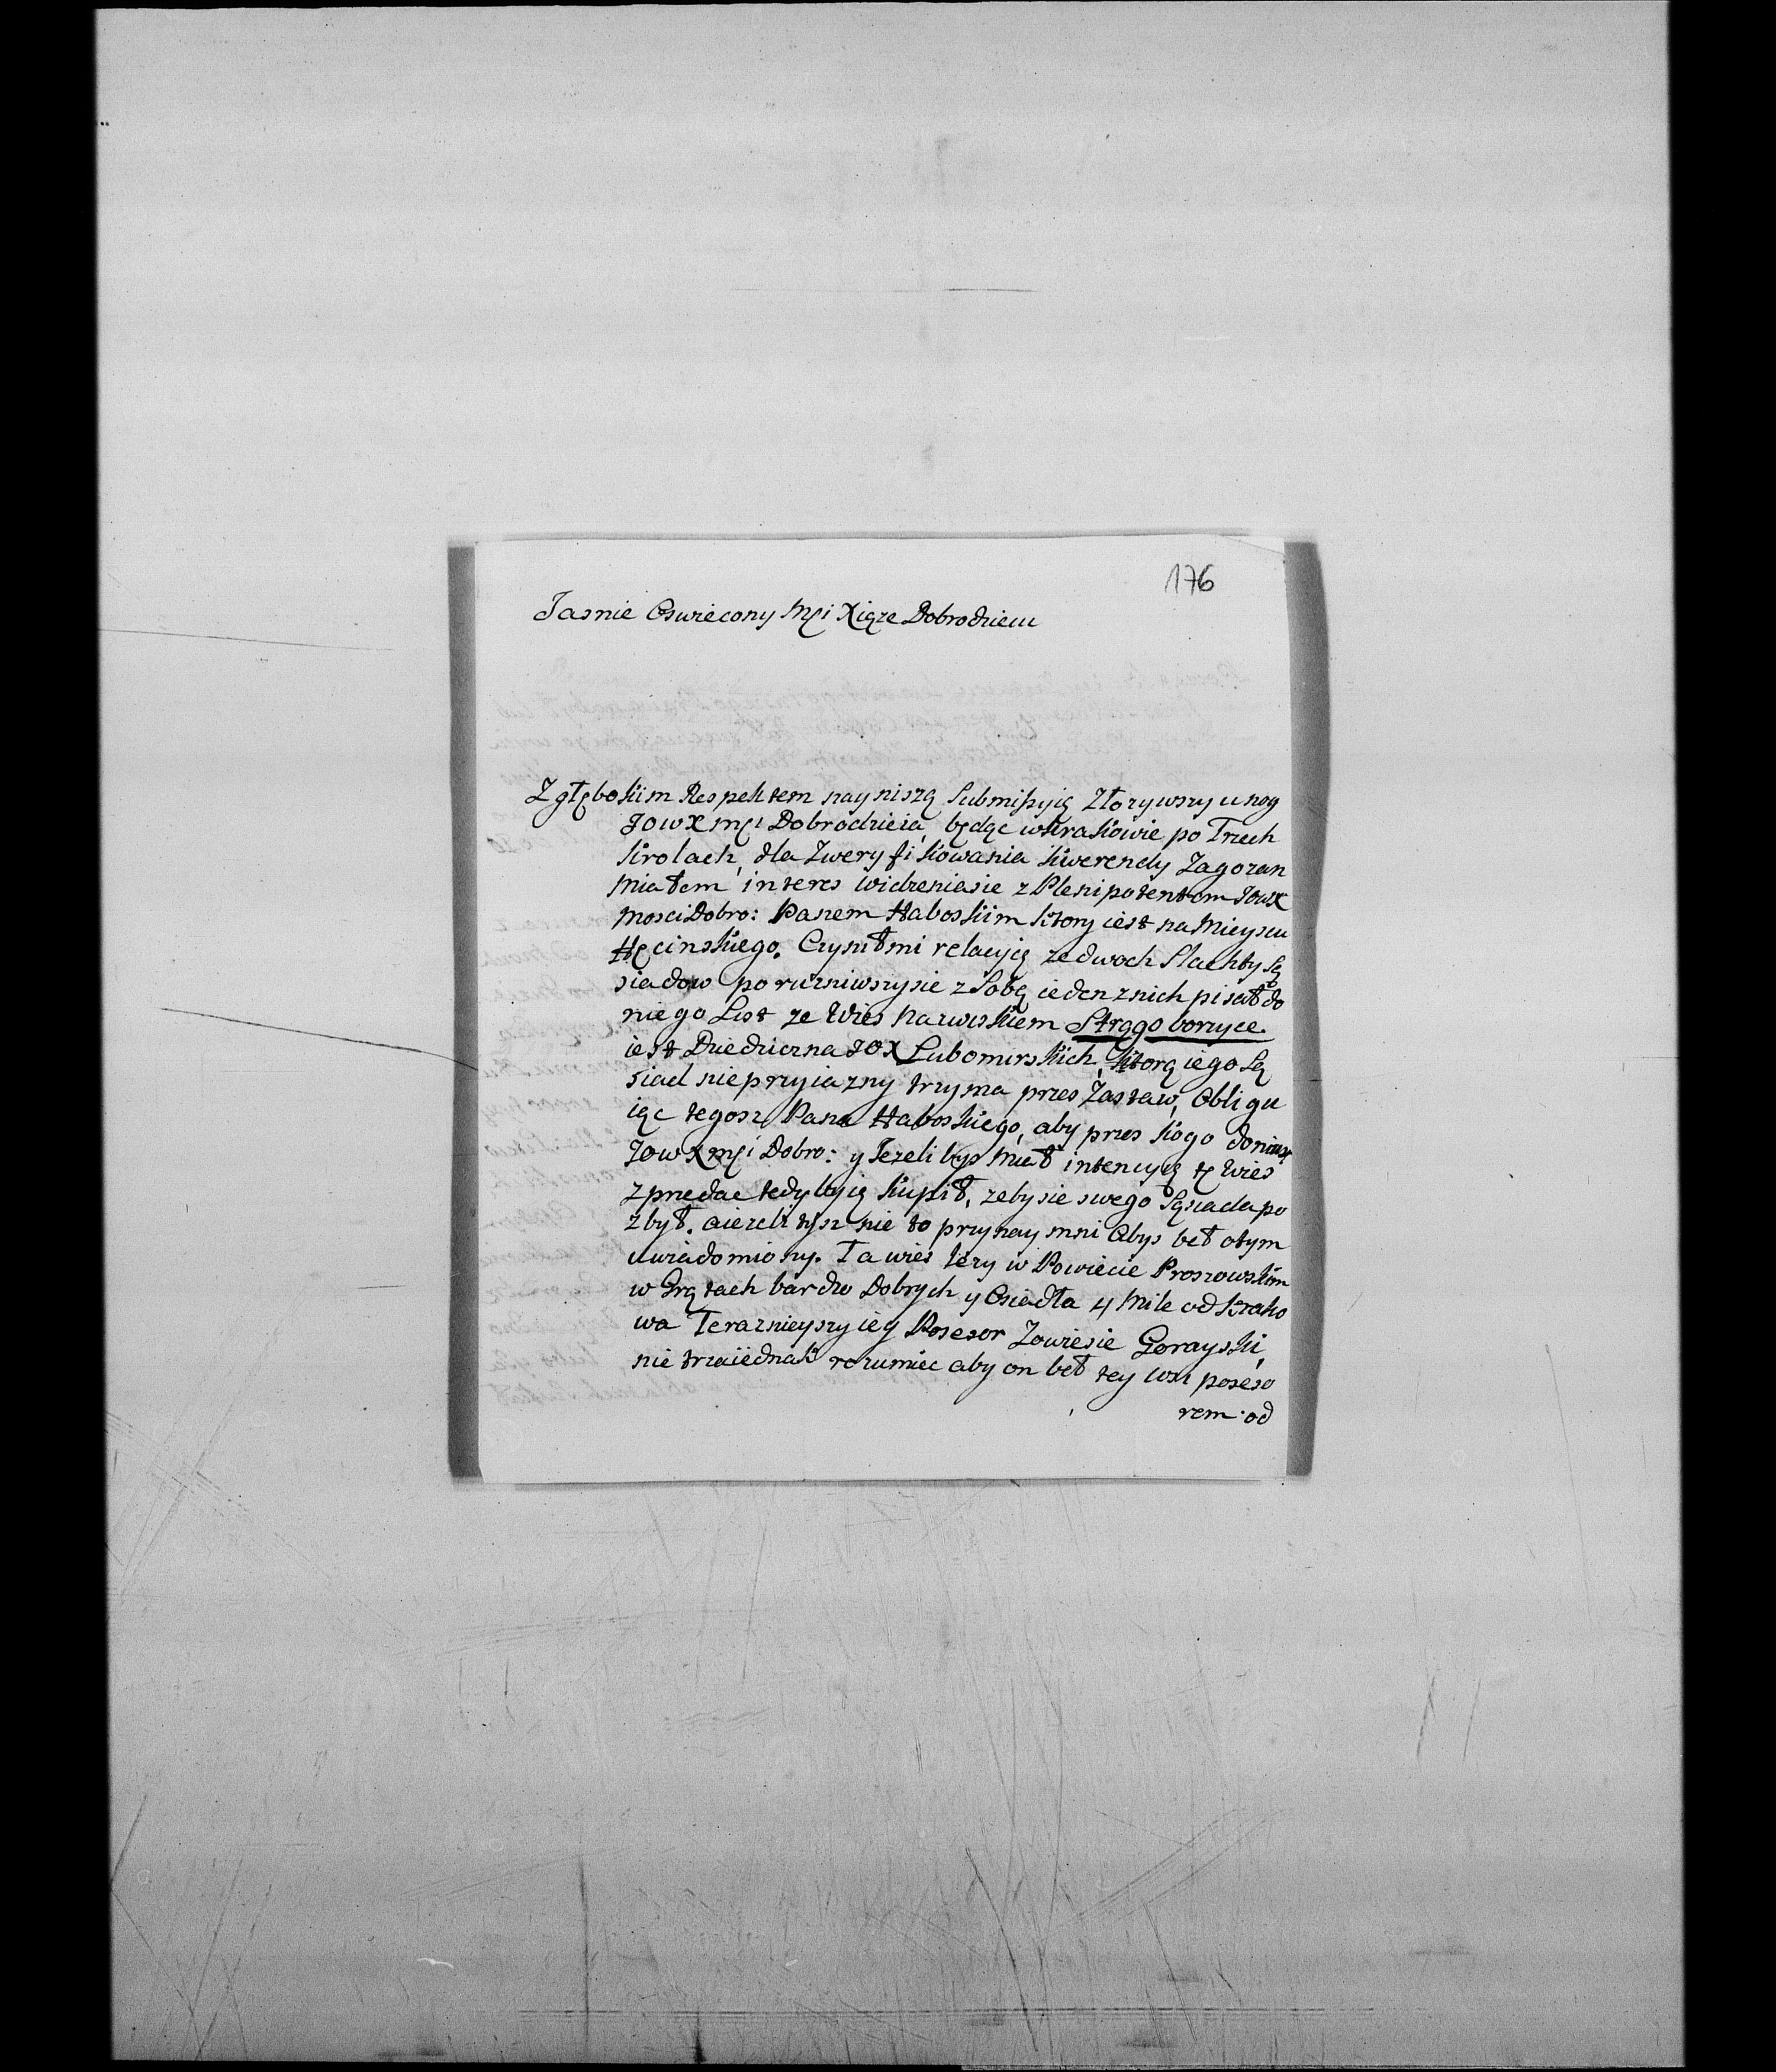 176
Jasnie Oswiecony Mci Xiąze Dobrodzieiu
Z głębokim Respektem nayniszą Submissyią Złozywszy u nog
JOWXMCi Dobrodzieia, będąc w Krakowie po Trzech
Krolach, dla Zweryfikowania Kwerendy Zagozan
Miałem interes widzeniasie z Plenipotentem JOWX
Mosci Dobro: Panem Haboskim ktory iest na Mieyscu
Hęcinskiego. Czynił mi relacyią ze dwoch Slachty Są
siadow porużniwszysie z Sobą ieden z nich pisał do
niego List ze Wies nazwiskiem Strągoborzyce
iest Dziedziczna JOX Lubomirskich, ktorą iego Są
siad nieprzyiazny trzyma przes Zastaw, Obligu
iąc tegosz Pana Haboskiego, aby przes kogo doniosł
JOWXMCi Dobro: y Jezelibys Miał intencyią tę Wies
Zprzedac tedyby ią kupił, zebysie swego Sąsiada po
zbył. aiezeli tysz nie to przynaymni Abys beł otym
uwiadomiony. Ta wies lezy w Powiecie Proszowskim
w Grątach bardzo Dobrych y Osiedła 4 Mile od Krako
wa Terazniejszy iey Posesor Zowiesie Gorayski,
nie trzaiednak rozumiec aby on beł tey wsi poseso
rem od